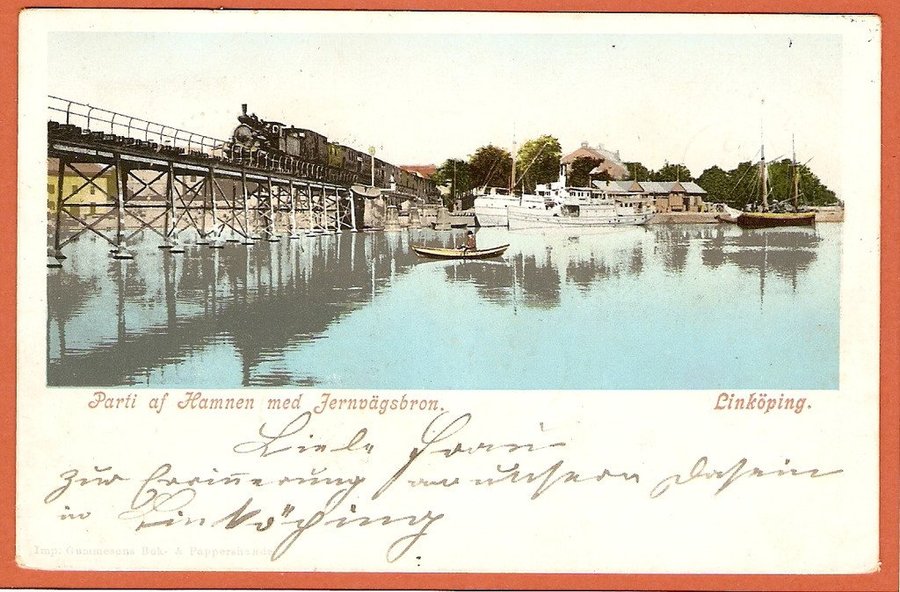 Parti af Hamnen med Jernvägsbron.
Linköping.
Liebe Frau
zur Erinnerung an unsern Dasein
in Linköping
Imp: Gummesons Bok- & Pappershandel